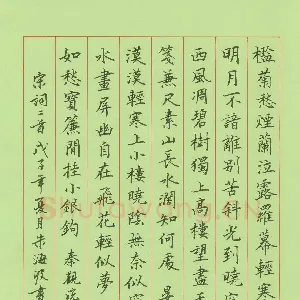 檻菊愁煙蘭泣露羅幕輕寒
明月不諳離別苦斜光到曉
西風凋碧樹獨上高樓望盡
箋兼尺素山長水闊知何處 晏
漠漠輕寒上小樓曉陰無賴似窮
水畫屏幽自在飛花輕似夢
如愁寶簾閒挂小銀鉤 秦觀
宋詞二首戊子年夏月朱海